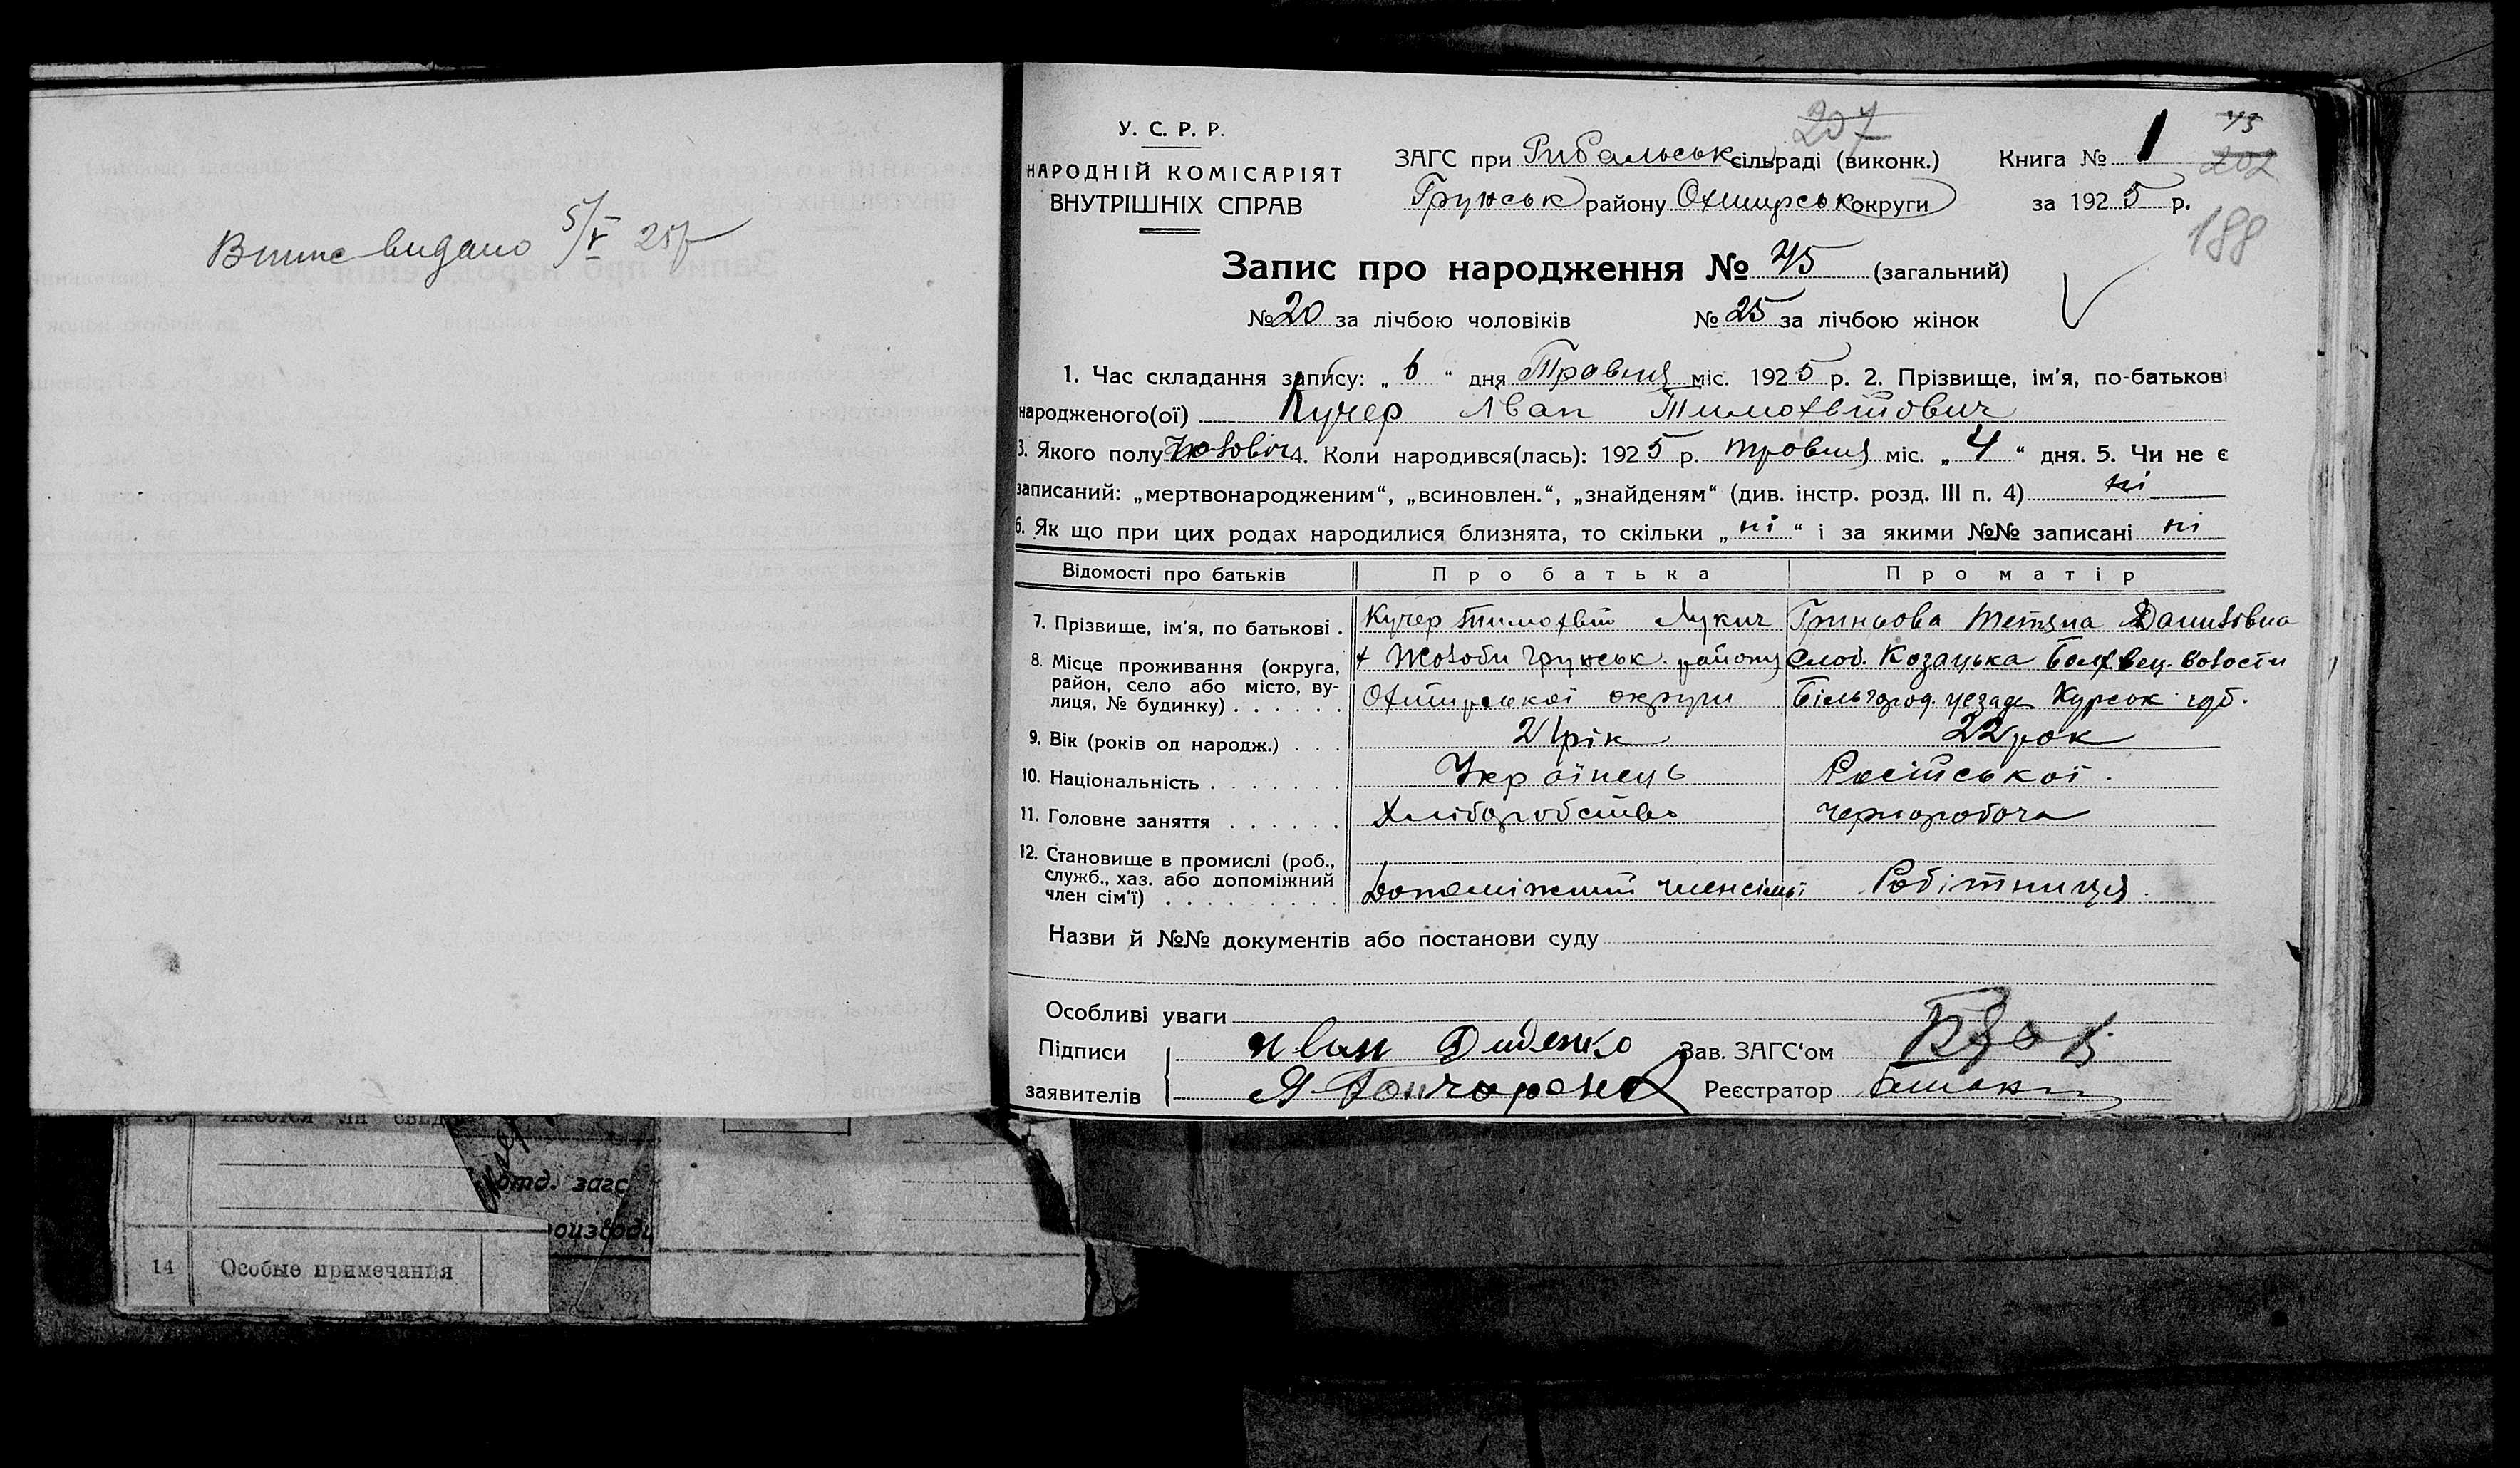 Виписе видано 5/V 25 р
У. С. Р. Р.
НАРОДНІЙ КОМІСАРІЯТ
ВНУТРІШНІХ СПРАВ
207
ЗАГС при Рибальськ сільраді (виконк.)
Грунськ району Охтирськ округи
Книга № 1
за 1925 р.
45
202
188
Запис про народження № 45 (загальний)
№ 20 за лічбою чоловіків № 25 за лічбою жінок
1. Час складання запису: „ 6 “ дня Травня міс. 1925 р. 2. Прізвище, ім'я, по-батькові
народженого(ої) Кучер Іван Тимохвійович
3. Якого полу Чоловіч 4. Коли народився(лась): 1925 р. травня міс. „ 4 “ дня. 5. Чи не є
записаний: „мертвонародженим“, „всиновлен.“, „знайденям“ (див. інстр. розд. III п. 4) ні
6. Як що при цих родах народилися близнята, то скільки „ ні “ і за якими №№ записані ні
Відомості про батьків Про батька Про матір
7. Прізвище, ім'я, по батькові . Кучер Тимохвій Лукич Гриньова Тетяна Данилівна
8. Місце проживання (округа, х Жолоби Грунськ. району Слоб. Козацька Волости
район, село або місто, ву-
лиця, № будинку) . . . . . . Охтирської округи Більгород. уезда Курськ губ.
9. Вік (років од народж.) . . . 21 рік 22 рок
10. Національність . . . . . . . Українець Російської .
11. Головне заняття . . . . . . Хліборобство чорноробоча
12. Становище в промислі (роб.,
служб., хаз. або допоміжний
член сім'ї) . . . . . . . . . Допоміжний член сімьї Робітниця .
Назви й №№ документів або постанови суду
Особливі уваги
Підписи Иван Диденко Зав. ЗАГС‘ом
заявителів Я Гончаренко Реєстратор
отд. загс
14 Особые примечания